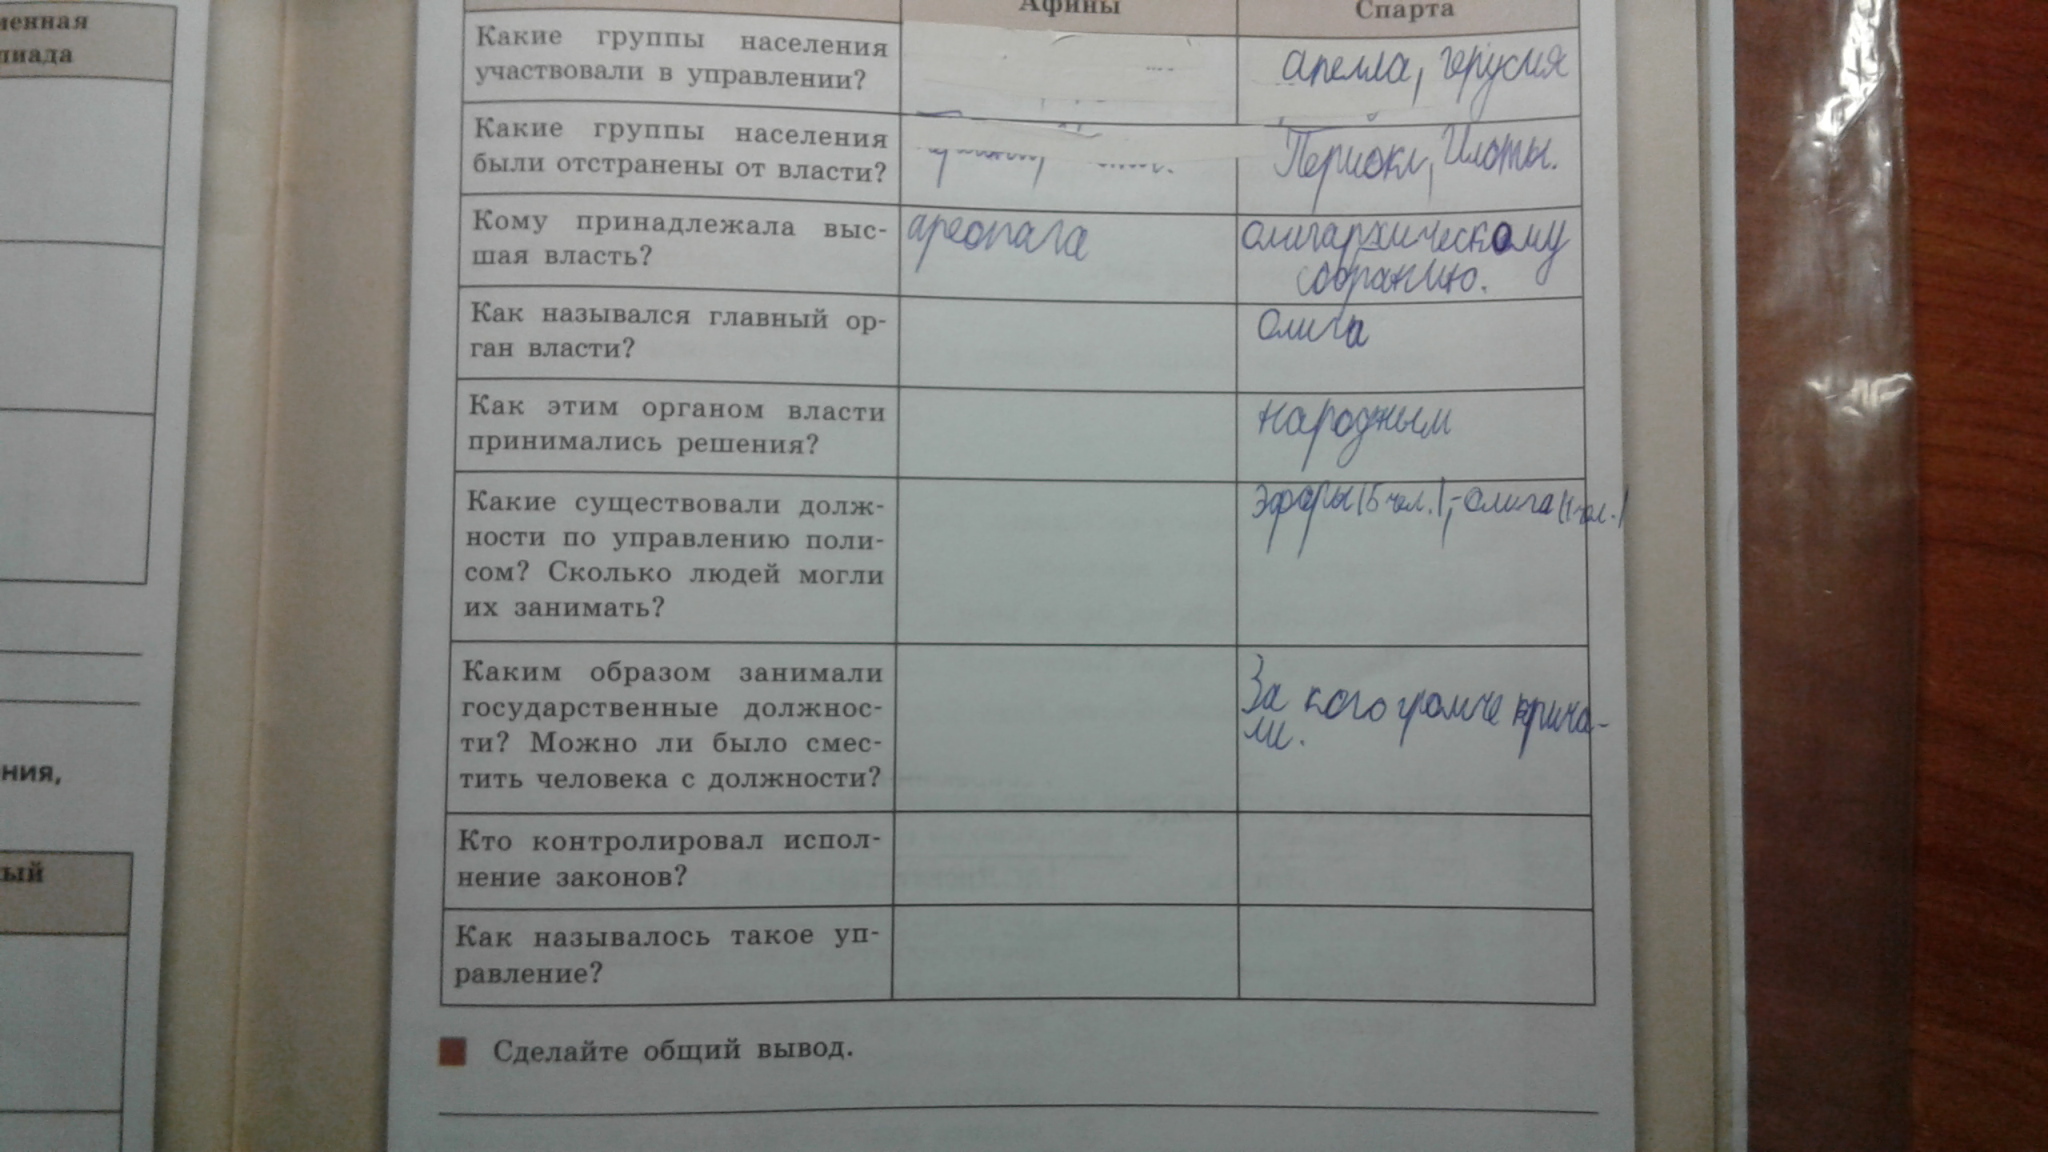 менная
пиада
ния,
ый
Афины Спарта
Какие группы населения
участвовали в управлении?
апелла, герусия
Какие группы населения
были отстранены от власти?
Периокл, Илоты.
Кому принадлежала выс-
шая власть?
ареопага
олигархическому
собранию.
Как назывался главный ор-
ган власти?
олига
Как этим органом власти
принимались решения?
народным
Какие существовали долж-
ности по управлению поли-
сом? Сколько людей могли
их занимать?
эфоры (5 чел.), - олига (1 чел.)
Каким образом занимали
государственные должнос-
ти? Можно ли было смес-
тить человека с должности?
За кого громче крича-
ли.
Кто контролировал испол-
нение законов?
Как называлось такое уп-
равление?
Сделайте общий вывод.